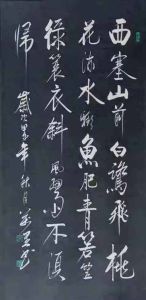 西塞山前白鹭飞桃
花流水鳜鱼肥青箬笠
绿蓑衣斜风细雨不须
归